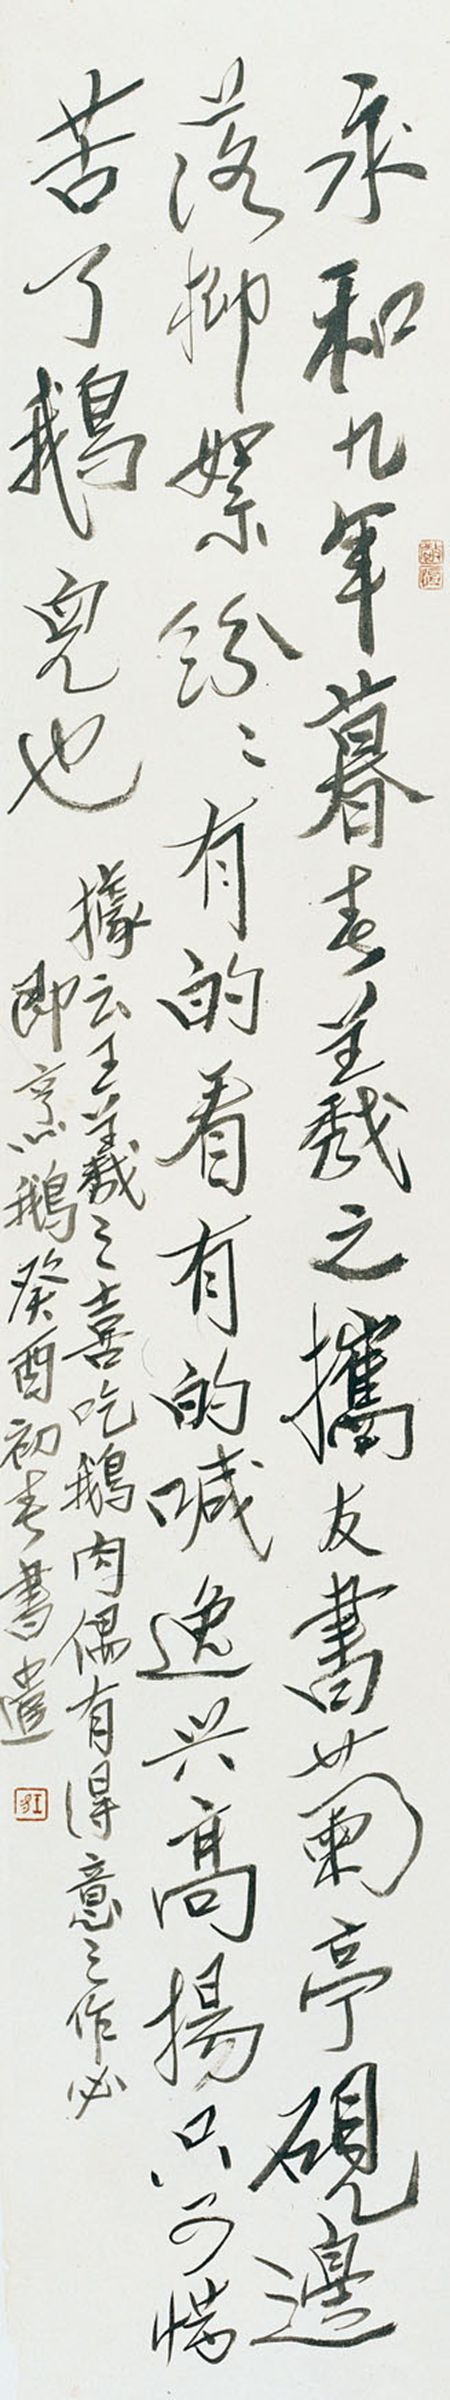 永和九年暮春羲之攜友書蘭亭硯邊
落柳絮紛〻有的看有的喊逸兴高揚只可惜
苦了鵝兒也
據云王羲之喜吃鵝肉偶有得意之作必
即烹鵝癸酉初春書遣